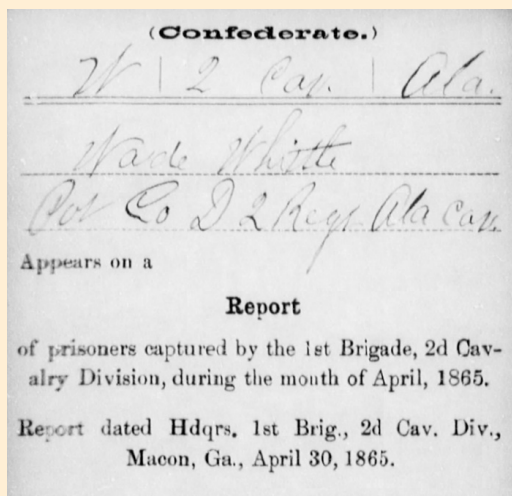 (Confederate.)
W | 2 Cav. | Ala.
Wade Whistle
Pvt Co D 2 Regt Ala Cav.
Appears on a
Report
of prisoners captured by the 1st Brigade, 2d Cav-
alry Division, during the month of April, 1865.
Report dated Hdqrs. 1st Brig., 2d Cav. Div.,
Macon, Ga., April 30, 1865.